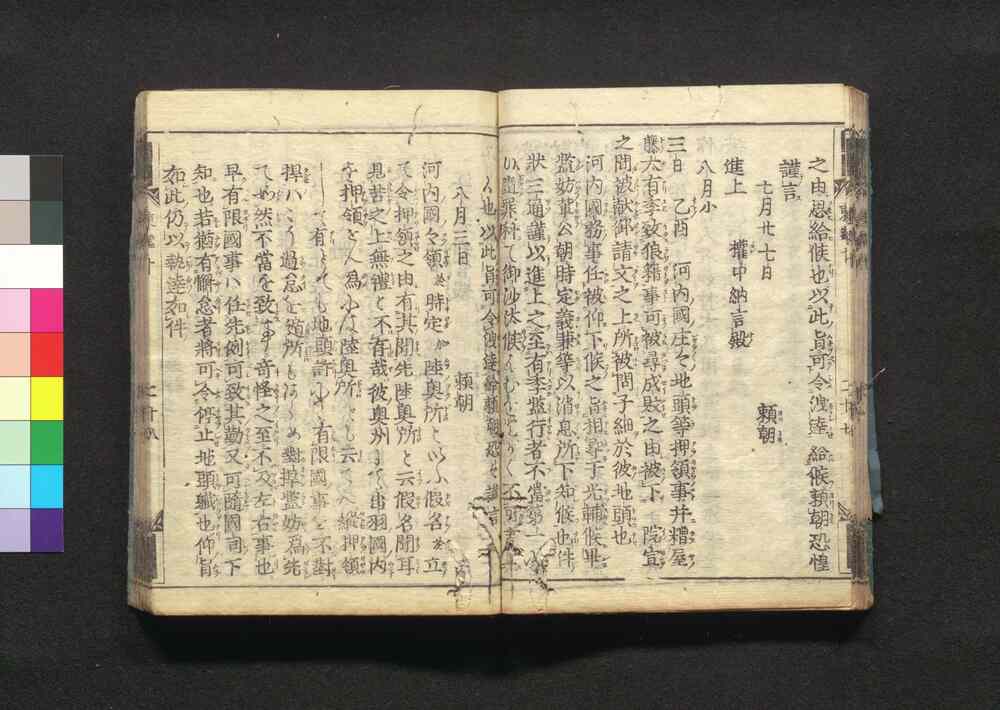 之由恩給候也以此旨可令洩達給候頼朝恐惶
謹言
七月廿七日　頼朝
進上　權中納言殿
八月小
三日　乙酉　河内國庄々地頭等押領事并糟屋
藤太有季致狼藉事可被尋成敗之由被下　院宣
之間被献御請文之上所被問子細於彼地頭也
河内國務事任被仰下候之旨相尋于光輔候畢
濫妨輩公朝時定義兼等以消息所下知候也件
状三通謹以進上之至有季濫行者不當第一
罪科て御沙汰候
也以此旨可令洩達給頼朝恐々謹言
八月三日　頼朝
河内國々領を時定か陸奥所といふ假名を立
て令押領之由有其聞先陸奥所と云假名聞耳
見苦之上無禮と不存哉彼奥州して出羽國内
を押領せん為には陸奥所とも云へ縦押領
して有とても地頭許こそ有限國事を不對
捍ハこう過怠を遁所も有らめ對捍濫妨為先
てめ然不當を致す事奇怪之至不及左右事也
早有限國事ハ任先例可致其勤又可隨國司下
知也若猶有懈怠者將可令停止地頭職也仰旨
如此仍以執達如件